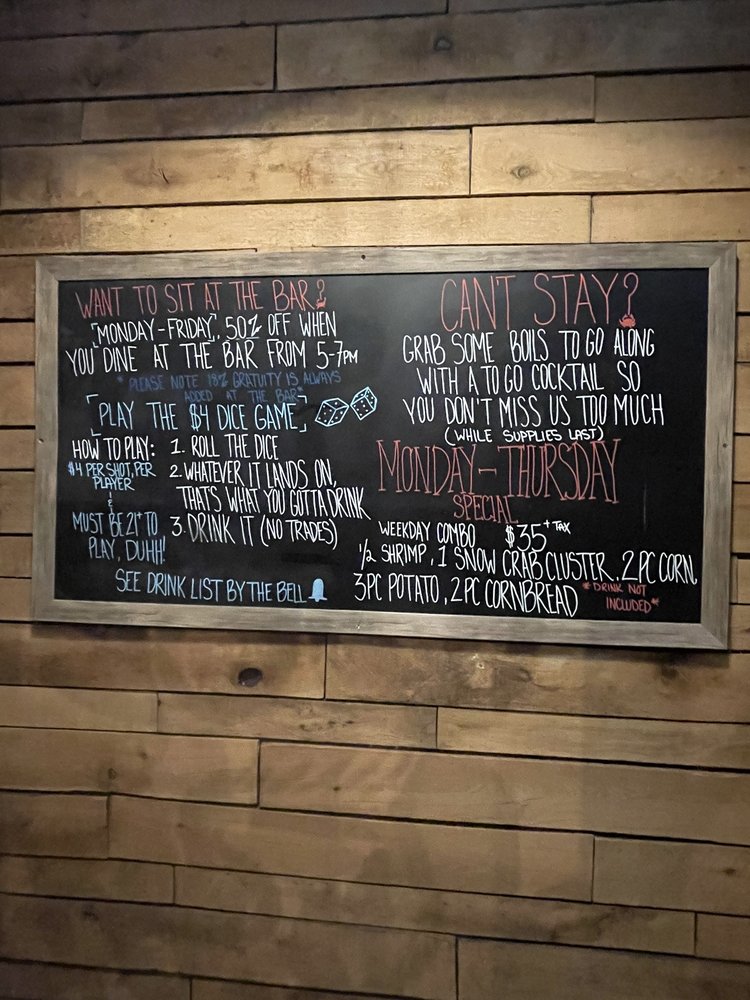 WANT TO SIT AT THE BAR?
[MONDAY-FRIDAY], 50% OFF WHEN
YOU DINE AT THE BAR FROM 5-7PM
*PLEASE NOTE 18% GRATUITY IS ALWAYS
ADDED AT THE BAR*
[PLAY THE $4 DICE GAME]
HOW TO PLAY:
$4 PER SHOT, PER
PLAYER
&
MUST BE 21+ TO
PLAY, DUHH!
1. ROLL THE DICE
2. WHATEVER IT LANDS ON,
THAT'S WHAT YOU GOTTA DRINK
3. DRINK IT (NO TRADES)
SEE DRINK LIST BY THE BELL
CAN'T STAY?
GRAB SOME BOILS TO GO ALONG
WITH A TO GO COCKTAIL SO
YOU DON'T MISS US TOO MUCH
(WHILE SUPPLIES LAST)
MONDAY-THURSDAY
SPECIAL
WEEKDAY COMBO $35+TAX
1/2 SHRIMP, 1 SNOW CRAB CLUSTER, 2PC CORN,
3PC POTATO, 2PC CORNBREAD
*DRINK NOT
INCLUDED*